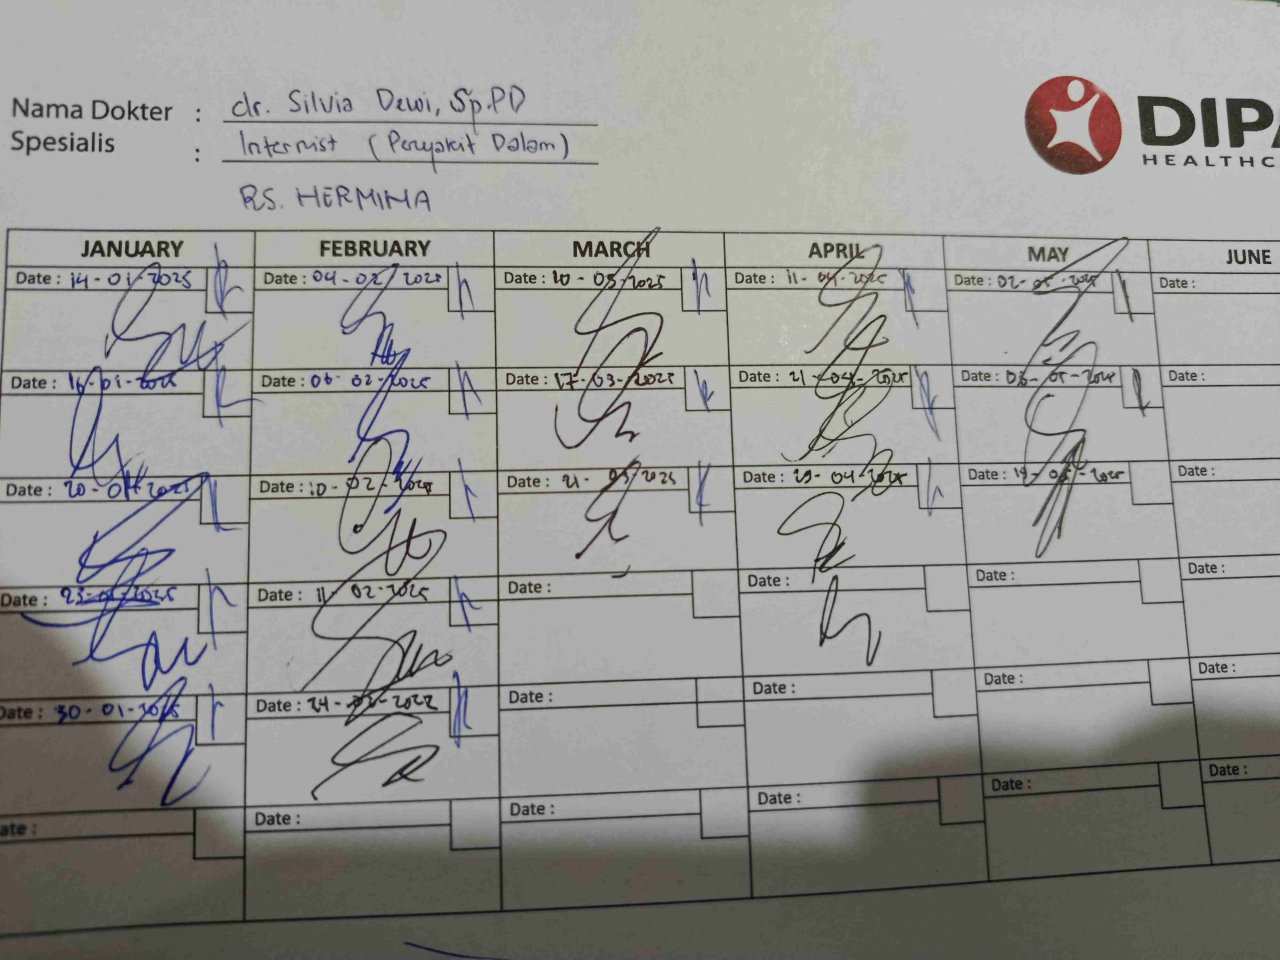 Nama Dokter : dr. Silvia Dewi, Sp.PD
Spesialis : Internist (Penyakit Dalam)
RS. HERMINA
DIPA
HEALTHC
JANUARY FEBRUARY MARCH APRIL MAY JUNE
Date : 14-01-2025 Date : 04-02-2025 Date : 10-03-2025 Date : 11-04-2025 Date : 02-05-2025 Date :
Date : 16-01-2025 Date : 06-02-2025 Date : 17-03-2025 Date : 21-04-2025 Date : Date :
Date : 20-01-2025 Date : 10-02-2025 Date : 21-03-2025 Date : 29-04-2025 Date : 19-05-2025 Date :
Date : 23-01-2025 Date : 11-02-2025 Date : Date : Date : Date :
Date : 30-01-2025 Date : Date : Date : Date : Date :
ate : Date : Date : Date : Date : Date :